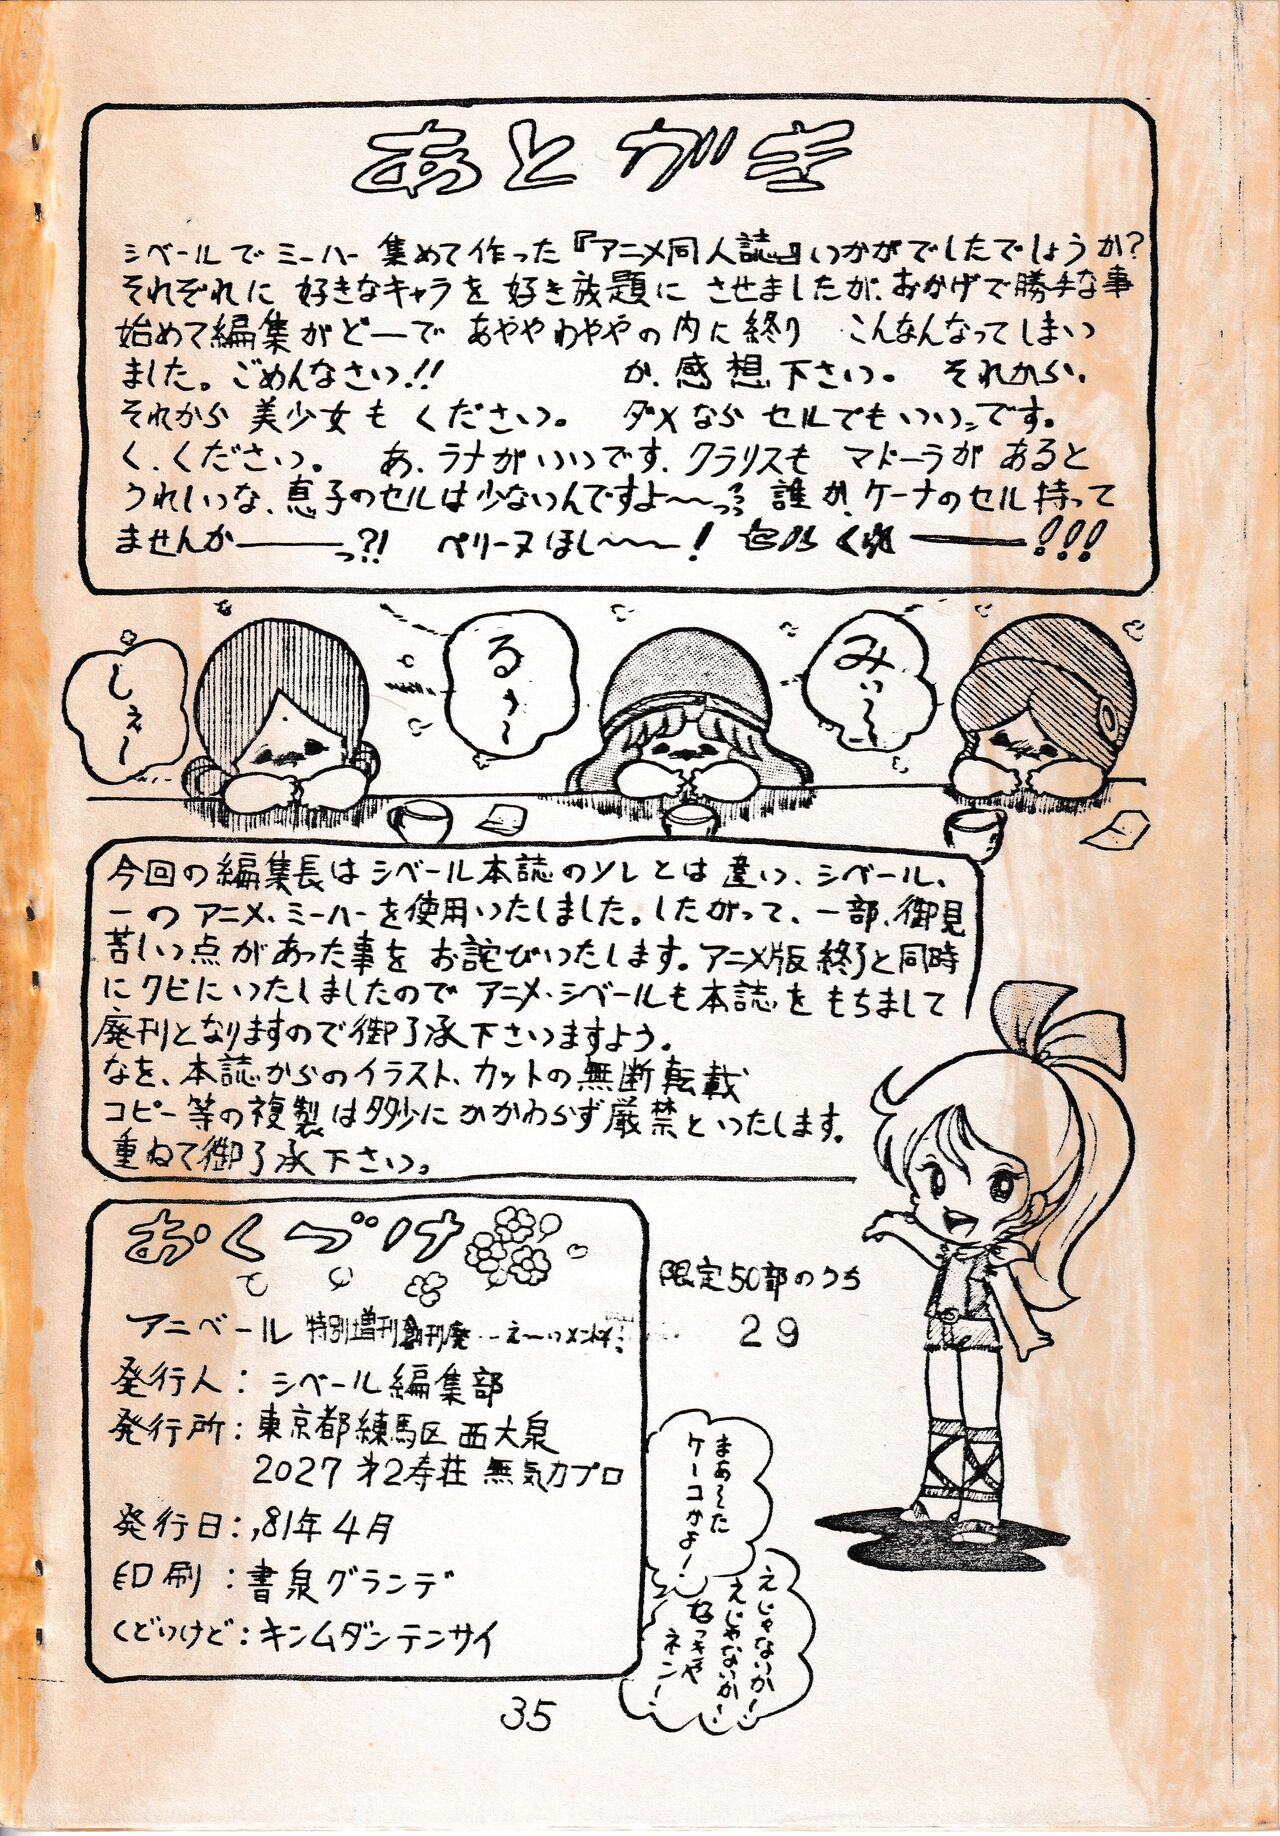 あとがき
シベールでミーハー集めて作った『アニメ同人誌』いかがでしたでしょうか?
それぞれに 好きなキャラを好き放題に させましたが、おかげで勝手な事
始めて編集がどーで あややわややの内に終り こんなんなってしまい
ました。ごめんなさい!! か、感想下さい。 それから、
それから 美少女も ください。 ダメなら セルでもいいンです。
く、ください。 あ、ラナがいいです、クラリスも マドーラが あると
うれしいな、息子のセルは少ないんですよ〜〜っっっ 誰か、ケーナのセル持って
ませんか———っ?! ペリーヌほし〜〜〜!
しぇ〜
るぅ〜
みぃ〜〜
今回の編集長はシベール本誌のソレとは違い、シベール、
一のアニメ、ミーハーを使用いたしました。したがって、一部、御見
苦しい点があった事をお詫びいたします。アニメ版終了と同時
にクビにいたしましたのでアニメ・シベールも本誌をもちまして
廃刊となりますので御了承下さいますよう。
なを、本誌からのイラスト、カットの無断転載
コピー等の複製は多少にかかわらず厳禁といたします。
重ねて御了承下さい。
おくづけ
アニベール 特別増刊創刊廃…え〜いメンドイ!
発行人:シベール編集部
発行所:東京都練馬区西大泉
2027 才2寿荘 無気力プロ
発行日:,81年4月
印刷:書泉グランデ
くどいけど:キンムダンテンサイ
限定50部のうち
29
まあ〜た
ケーコかよ!
えじゃないか!
えじゃないか!
好っきゃ
ネン!
35